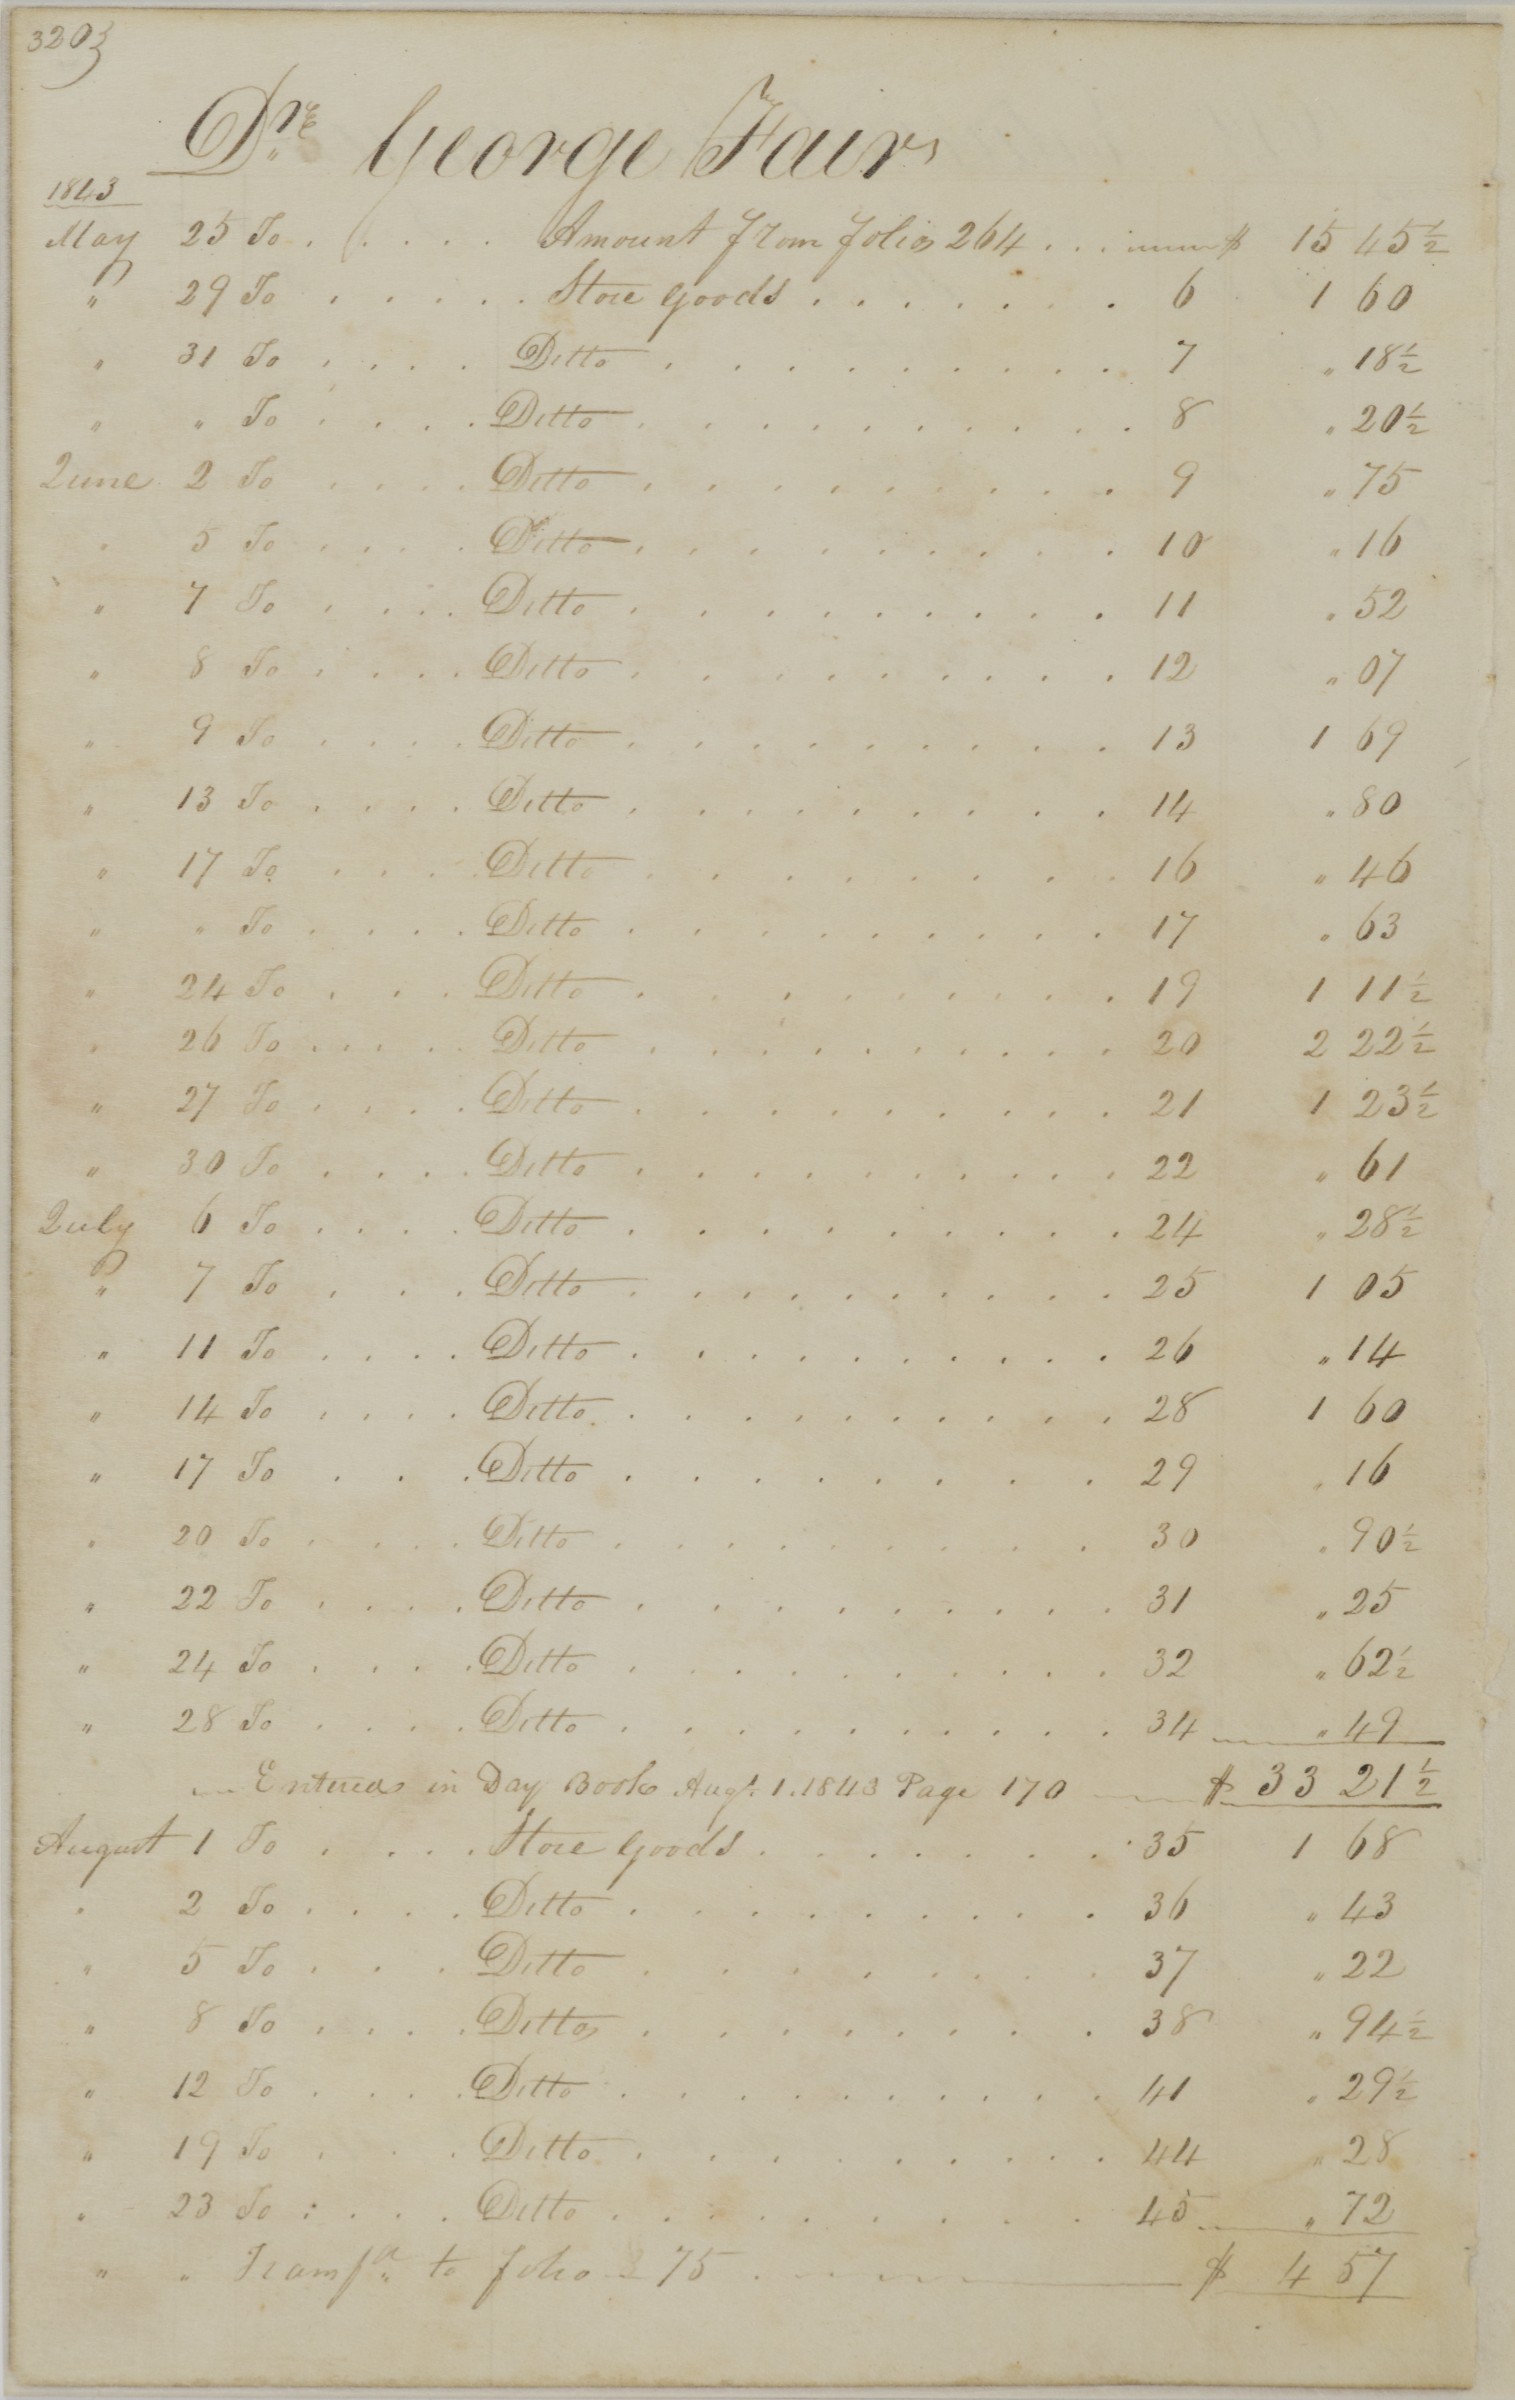 320
Dr. George Fair
1843
May 25 To . . . . . Amount from folio 264 . . . $ 15 45½
" 29 To . . . . . Store goods . . . . . . . 6 1 60
" 31 To . . . . Ditto . . . . . . . . . 7 " 18½
" " To . . . . Ditto . . . . . . . . . 8 " 20½
June 2 To . . . . Ditto . . . . . . . . . 9 " 75
" 5 To . . . . Ditto . . . . . . . . . 10 " 16
" 7 To . . . . Ditto . . . . . . . . . 11 " 52
" 8 To . . . . Ditto . . . . . . . . . 12 " 07
" 9 To . . . . Ditto . . . . . . . . . 13 1 69
" 13 To . . . . Ditto . . . . . . . . . 14 " 80
" 17 To . . . . Ditto . . . . . . . . . 16 " 46
" " To . . . . Ditto . . . . . . . . . 17 " 63
" 24 To . . . Ditto . . . . . . . . . 19 1 11½
" 26 To . . . . . Ditto . . . . . . . . . 20 2 22½
" 27 To . . . . Ditto . . . . . . . . . 21 1 23½
" 30 To . . . . Ditto . . . . . . . . . 22 " 61
July 6 To . . . . Ditto . . . . . . . . . 24 " 28½
" 7 To . . . Ditto . . . . . . . . . 25 1 05
" 11 To . . . . Ditto . . . . . . . . . 26 " 14
" 14 To . . . . Ditto . . . . . . . . . 28 1 60
" 17 To . . . Ditto . . . . . . . . . 29 " 16
" 20 To . . . . Ditto . . . . . . . . . 30 " 90½
" 22 To . . . . Ditto . . . . . . . . . 31 " 25
" 24 To . . . . Ditto . . . . . . . . . 32 " 62½
" 28 To . . . . Ditto . . . . . . . . . 34 " 49
Entered in Day Book Augt. 1. 1843 Page 170 $ 33 21½
August 1 To . . . . Store goods . . . . . . . 35 1 68
" 2 To . . . . Ditto . . . . . . . . . 36 " 43
" 5 To . . . Ditto . . . . . . . . . 37 " 22
" 8 To . . . . Ditto . . . . . . . . . 38 " 94½
" 12 To . . . . Ditto . . . . . . . . . 41 " 29½
" 19 To . . . Ditto . . . . . . . . . 44 " 28
" 23 To : . . . Ditto . . . . . . . . . 45 " 72
" " to folio 75 . $ 4 57